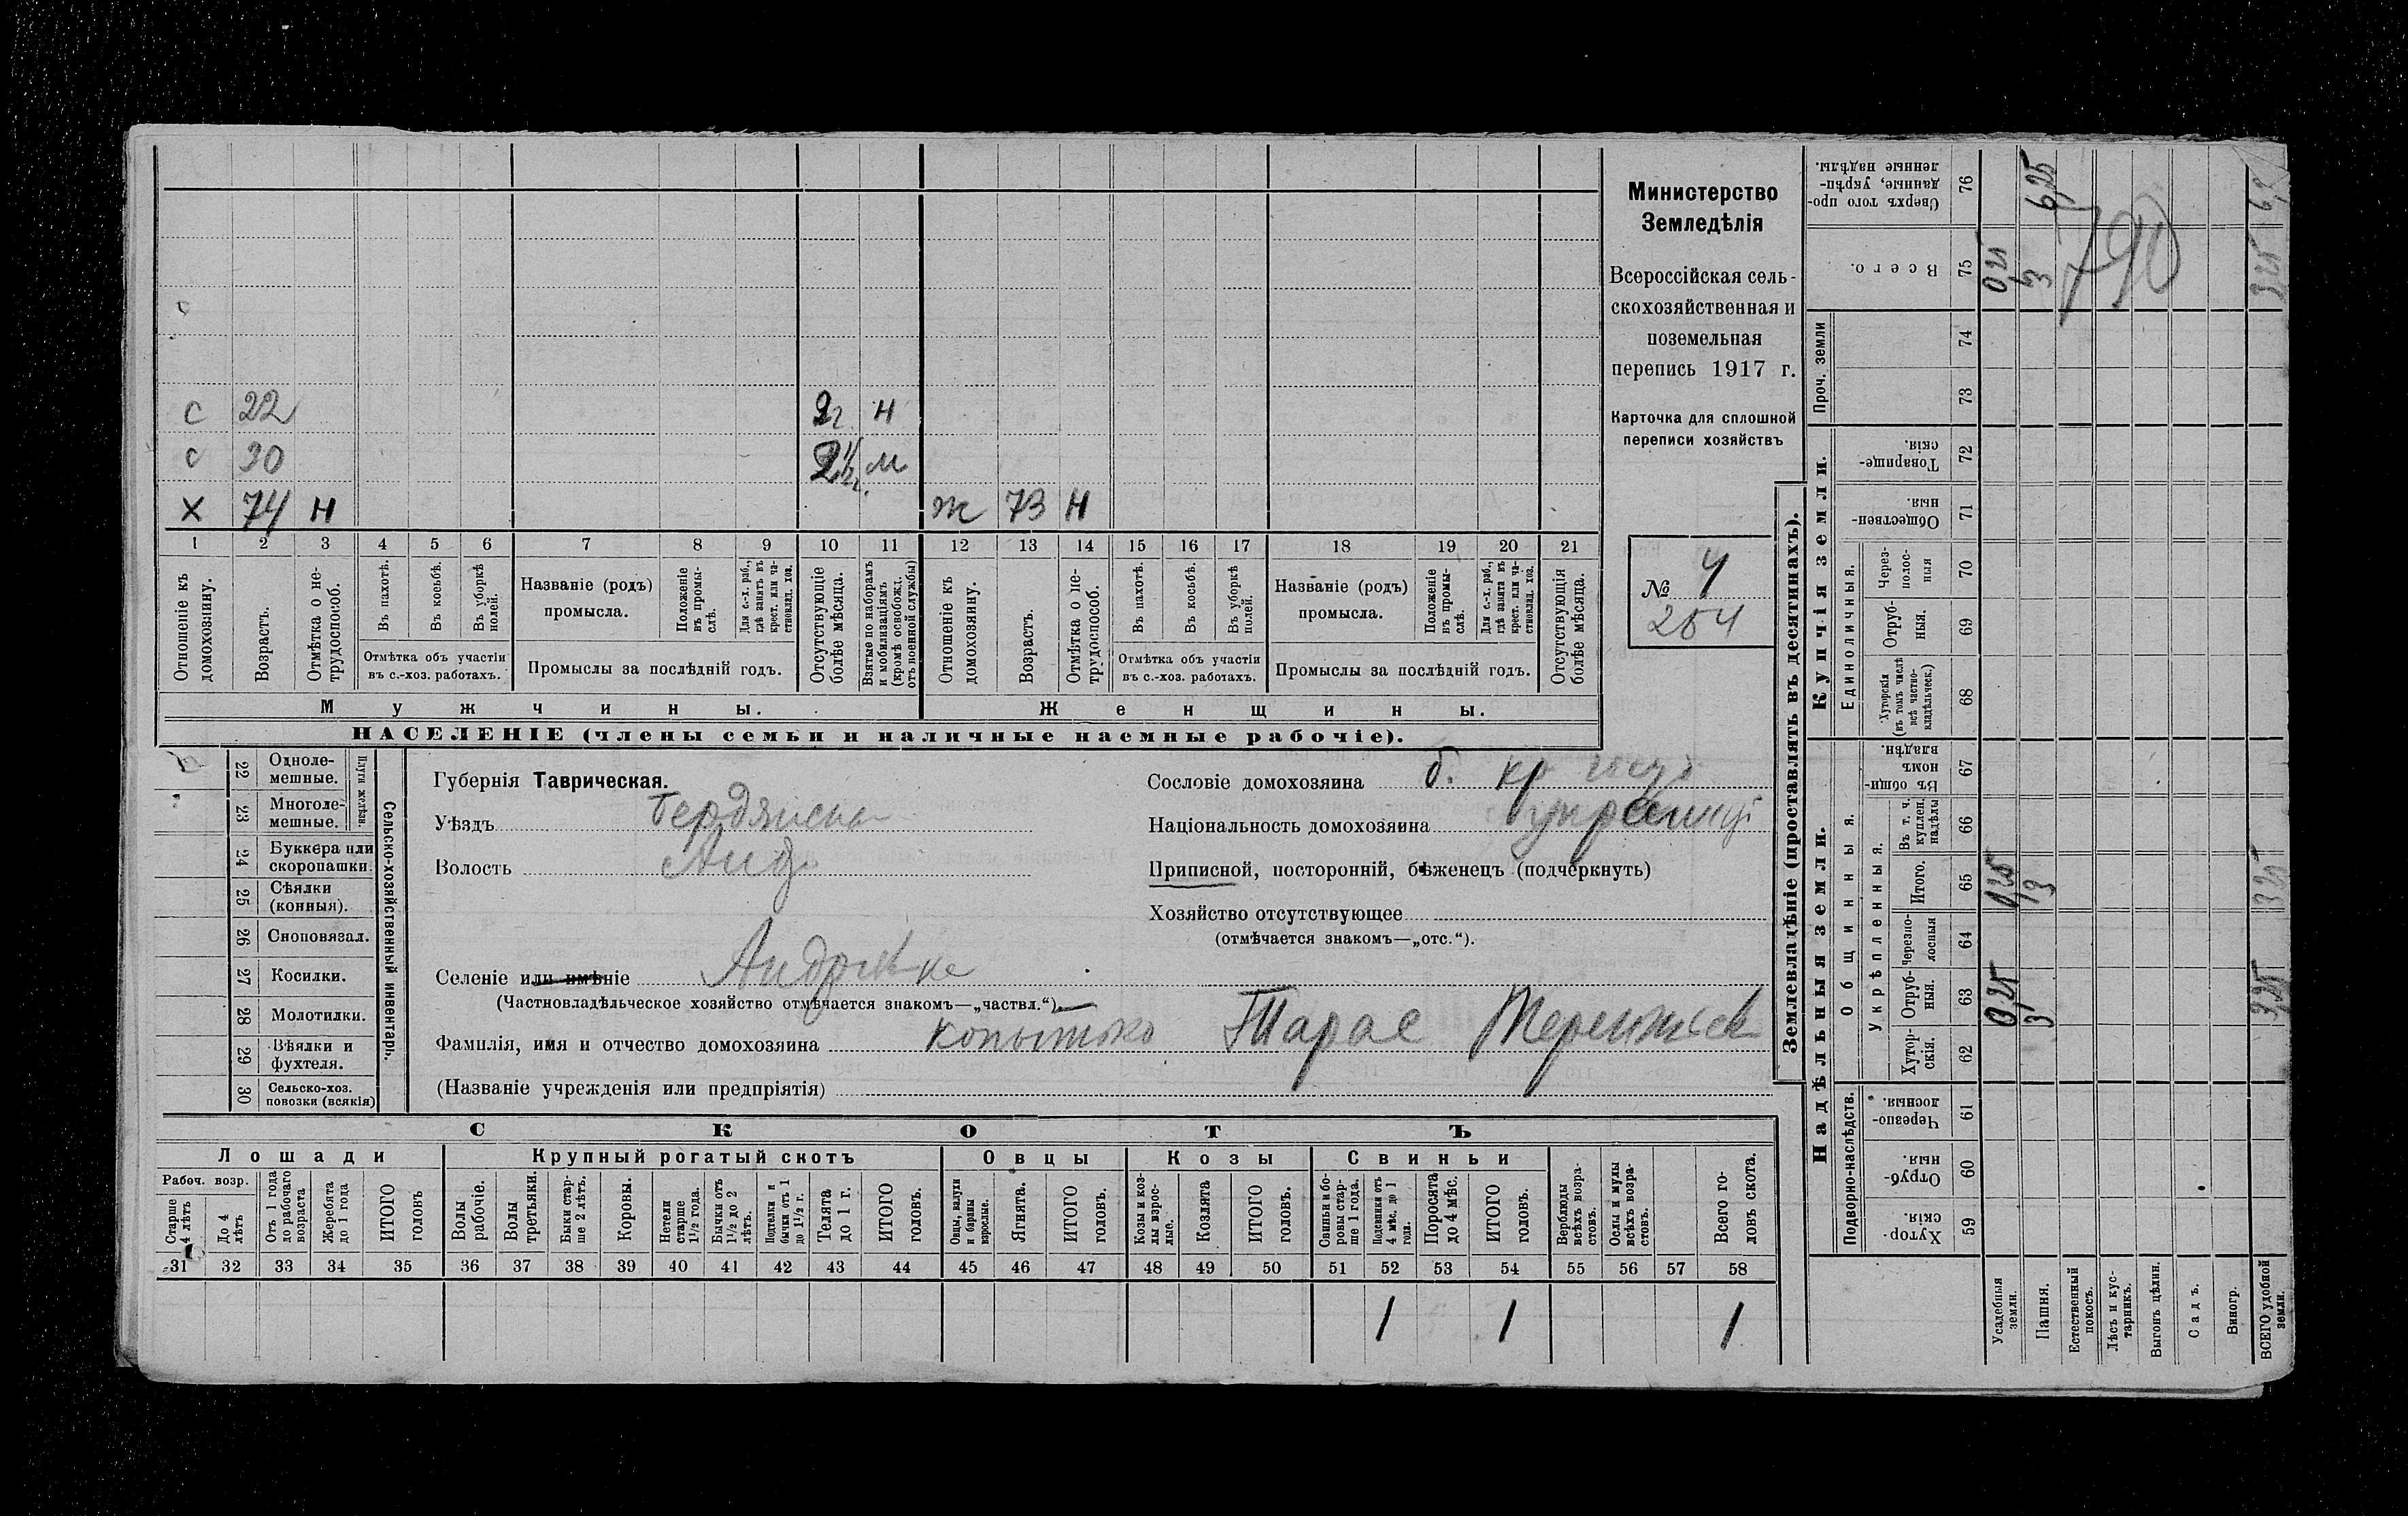 с 22 2 г. н
с 30 2 1/2 г. м
х 74 н ж 73 н
1 2 3 4 5 6 7 8 9 10 11 12 13 14 15 16 17 18 19 20 21
Отношеніе къ домохозяину.
Возрастъ.
Отмѣтка о не-
трудоспособ.
Въ пахотѣ.
Въ косьбѣ.
Въ уборкѣ
полей.
Отмѣтка объ участіи
въ с.-хоз. работахъ.
Названіе (родъ)
промысла.
Положеніе
въ промы-
слѣ.
Для с.-х. раб.,
гдѣ занятъ въ
крест. или ча-
стновлад. хоз.
Промыслы за послѣдній годъ.
Отсутствующіе
болѣе мѣсяца.
Взятые по наборамъ
и мобилизаціямъ
(кромѣ освобожд.
отъ военной службы)
Отношеніе къ
домохозяину.
Возрастъ.
Отмѣтка о не-
трудоспособ.
Въ пахотѣ.
Въ косьбѣ.
Въ уборкѣ
полей.
Отмѣтка объ участіи
въ с.-хоз. работахъ.
Названіе (родъ)
промысла.
Положеніе
въ промы-
слѣ.
Для с.-х. раб.,
гдѣ занята въ
крест. или ча-
стновлад. хоз.
Промыслы за послѣдній годъ.
Отсутствующія
болѣе мѣсяца.
Мужчины.
Женщины.
НАСЕЛЕНІЕ (члены семьи и наличные наемные рабочіе).
Министерство
Земледѣлія
Всероссійская сель-
скохозяйственная и
поземельная
перепись 1917 г.
Карточка для сплошной
переписи хозяйствъ
№ 4
254
22 Одноле-
мешные.
23 Многоле-
мешные.
Плуги желѣзн.
24 Буккера или
скоропашки
25 Сѣялки
(конныя).
26 Сноповязал.
27 Косилки.
28 Молотилки.
29 Вѣялки и
фухтеля.
30 Сельско-хоз.
повозки (всякія)
Сельско-хозяйственный инвентарь.
Губернія Таврическая.
Уѣздъ Бердянск
Волость Анд
Селеніе или имѣніе
(Частновладѣльческое хозяйство отмѣчается знакомъ—„частвл.“).
Фамилія, имя и отчество домохозяина Копытько Тарас
(Названіе учрежденія или предпріятія)
Сословіе домохозяина б. кр
Національность домохозяина
Приписной, посторонній, бѣженецъ (подчеркнуть)
Хозяйство отсутствующее
(отмѣчается знакомъ—„отс.“).
СКОТЪ
Лошади
Крупный рогатый скотъ
Овцы
Козы
Свиньи
Рабоч. возр.
Старше
4 лѣтъ
До 4
лѣтъ
Отъ 1 года
до рабочаго
возраста
Жеребята
до 1 года
ИТОГО
головъ
Волы
рабочіе.
Волы
третьяки.
Быки стар-
ше 2 лѣтъ.
Коровы.
Нетели
старше
1½ года.
Бычки отъ
1½ до 2
лѣтъ.
Подтелки и
бычки отъ 1
до 1½ г.
Телята
до 1 г.
ИТОГО
головъ.
Овцы, валухи
и бараны
взрослые.
Ягнята.
ИТОГО
головъ.
Козы и коз-
лы взрос-
лые.
Козлята
ИТОГО
головъ.
Свиньи и бо-
ровы стар-
ше 1 года.
Подсвинки отъ
4 мѣс. до 1
года.
Поросята
до 4 мѣс.
ИТОГО
головъ.
Верблюды
всѣхъ возра-
стовъ.
Ослы и мулы
всѣхъ возра-
стовъ.
Всего го-
ловъ скота.
31 32 33 34 35 36 37 38 39 40 41 42 43 44 45 46 47 48 49 50 51 52 53 54 55 56 57 58
1 1 1
Землевладѣніе (проставлять въ десятинахъ).
Надѣльныя земли.
Купчія земли.
Проч. земли
Подворно-наслѣдств.
Общинныя.
Укрѣпленныя.
Единоличныя.
59 Хутор-
скія.
60 Отруб-
ныя.
61 Черезпо-
лосныя.
62 Хутор-
скія.
63 Отруб-
ныя. 0,25 3 3,25
64 Черезпо-
лосныя
65 Итого. 0,25 3 3,25
66 Въ т. ч.
куплен.
надѣлы
67 Въ общин-
номъ
владѣн.
68 Хуторскія
(въ томъ числѣ
всѣ частно-
владѣльческ.)
69 Отруб-
ныя.
70 Через-
полос-
ныя
71 Обществен-
ныя.
72 Товарище-
скія.
73
74
75 Всего. 0,25 3 3,25
76 Сверхъ того про-
данные, укрѣп-
ленные надѣлы. 6,25
790
Усадебныя
земли.
Пашня.
Естественный
покосъ.
Лѣсъ и кус-
тарникъ.
Выгонъ цѣлин.
Садъ.
Виногр.
ВСЕГО удобной
земли.